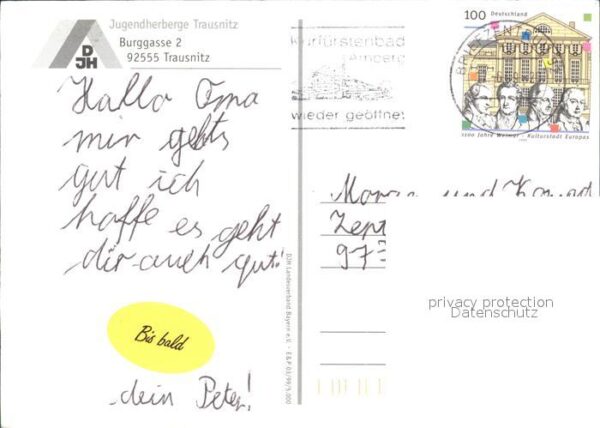 Jugendherberge Trausnitz
Burggasse 2
92555 Trausnitz
DJH
Hallo Oma
mir gehts
gut ich
hoffe es geht
dir auch gut!
Bis bald
dein Peter!
DJH Landesverband Bayern e.V. · E&P 03/99/5.000
Kurfürstenbad
Amberg
wieder geöffnet
BRIEFZENTRUM
100 Deutschland
1100 Jahre Weimar · Kulturstadt Europas
und
97
privacy protection
Datenschutz